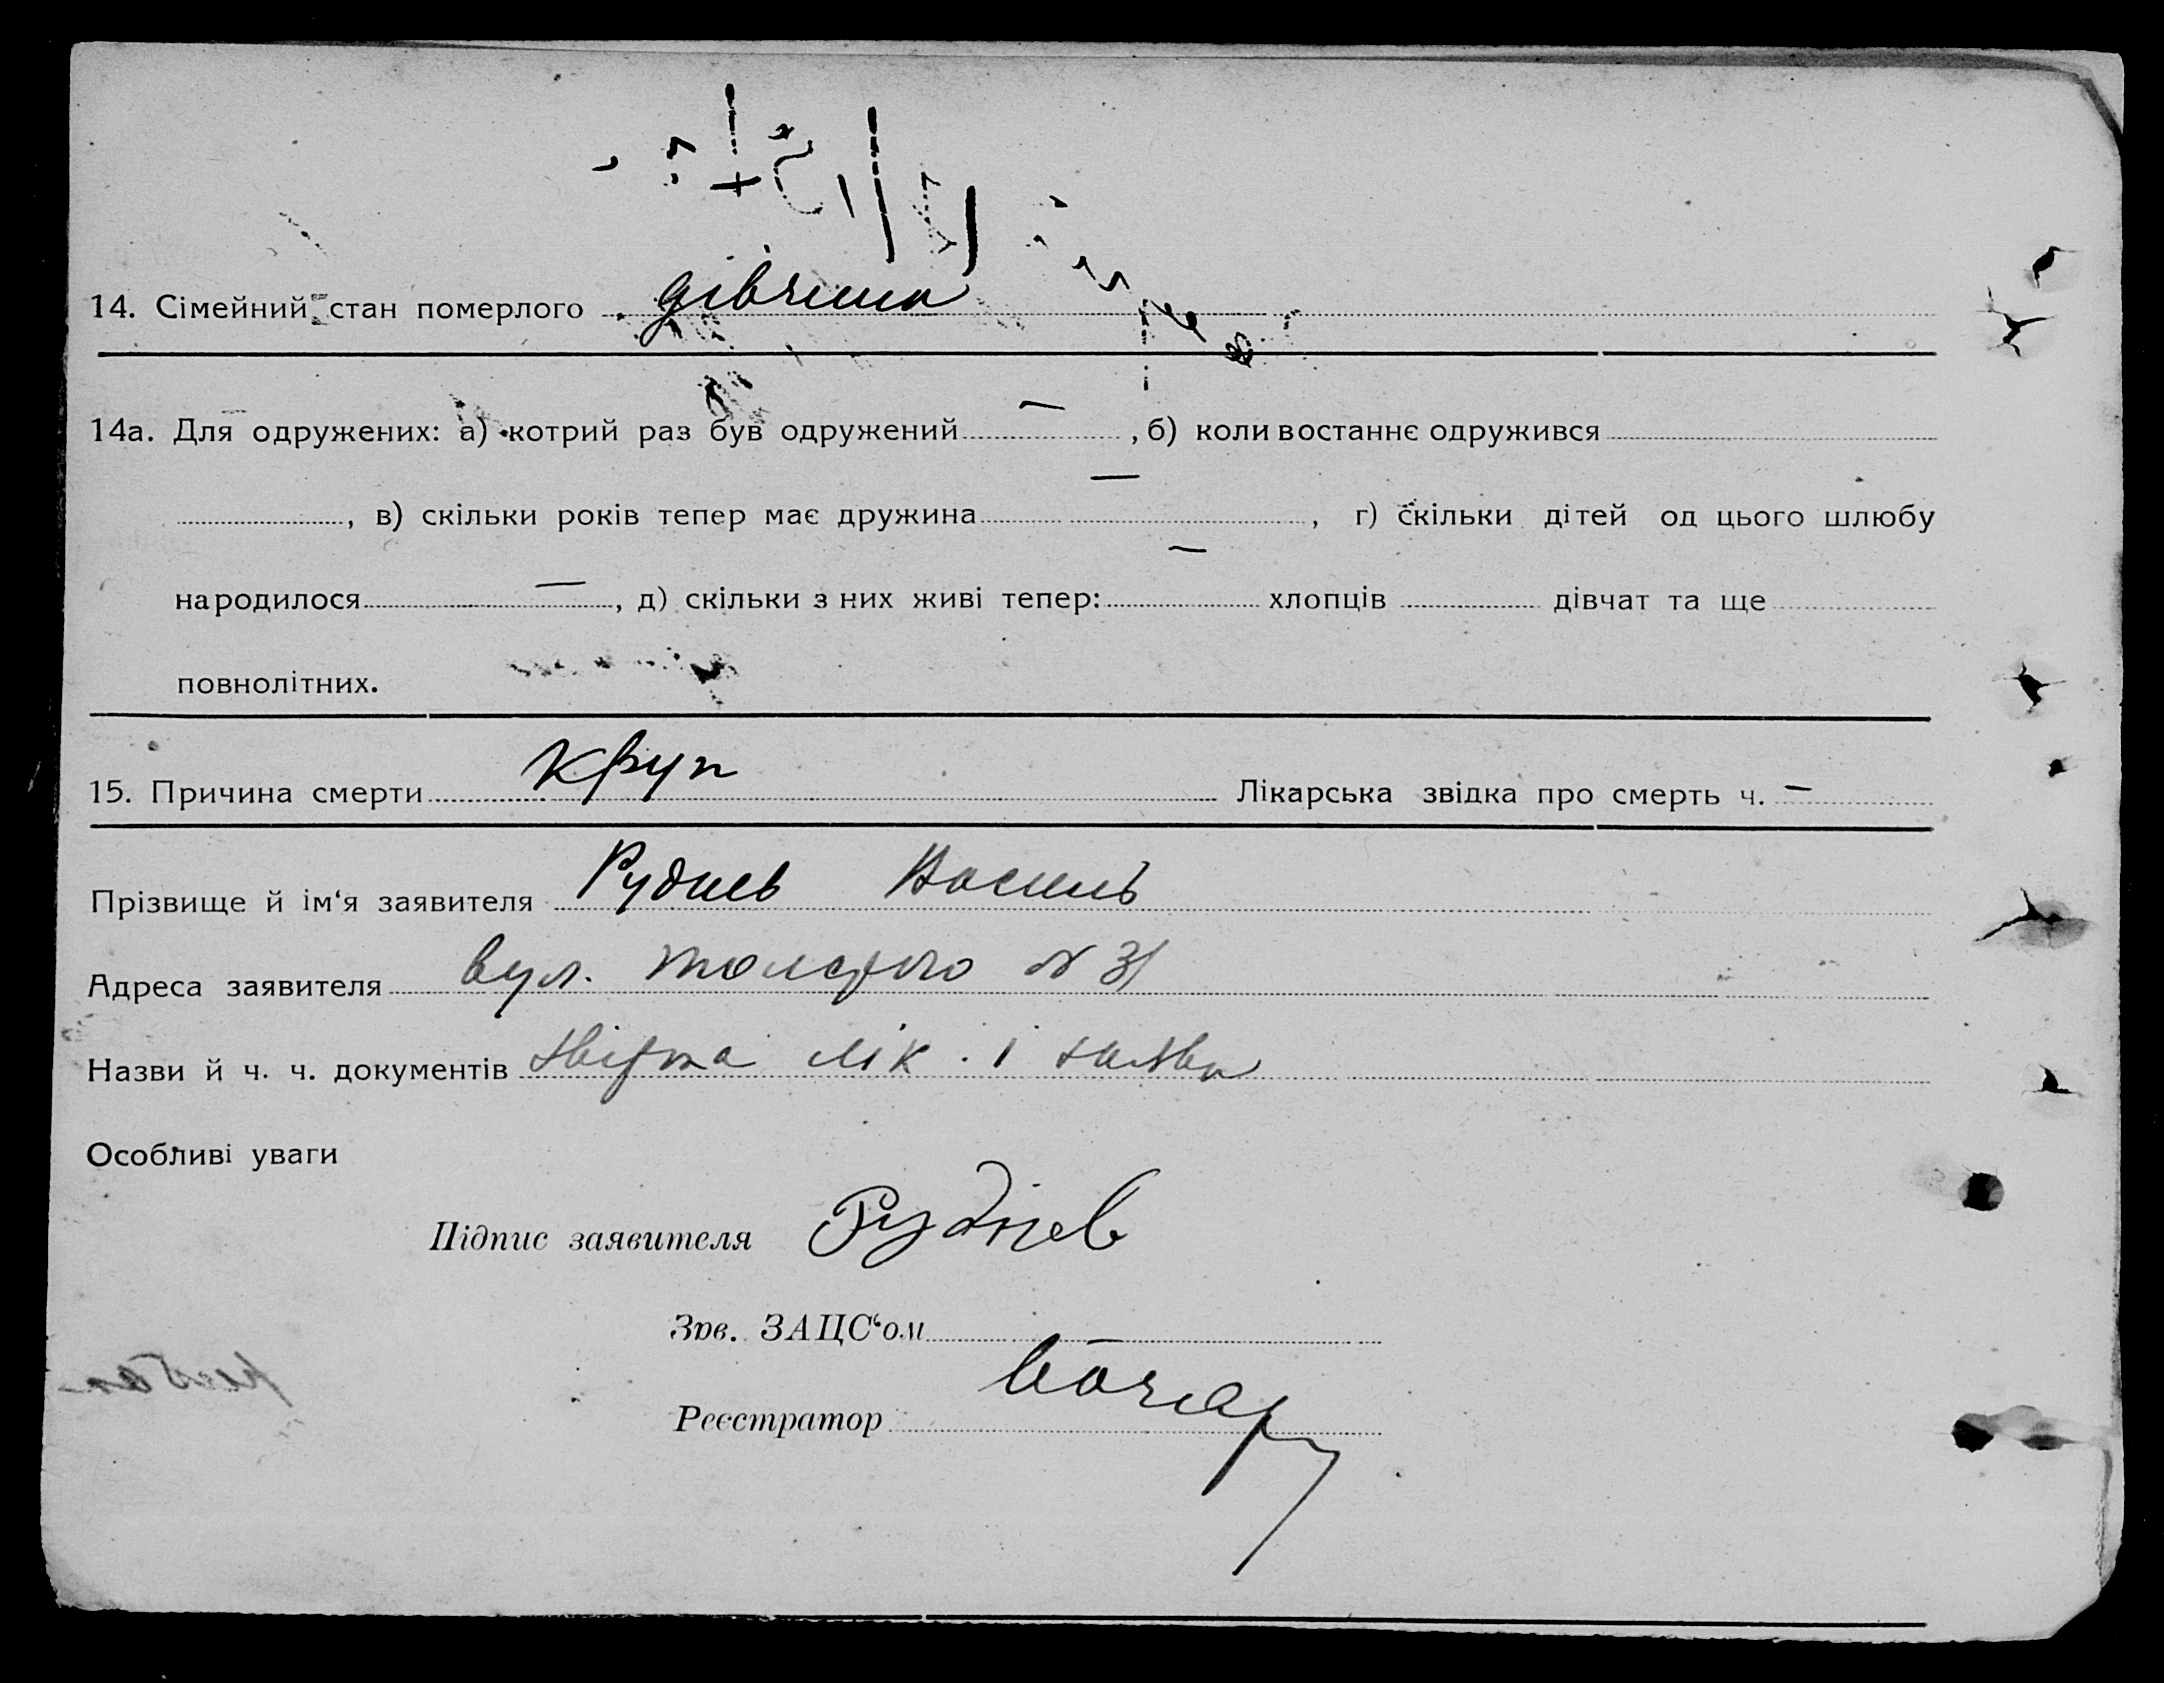 14. Сімейний стан померлого дівчина
14а. Для одружених: а) котрий раз був одружений — , б) коли востаннє одружився
, в) скільки років тепер має дружина — , г) скільки дітей од цього шлюбу
народилося — , д) скільки з них живі тепер: — хлопців дівчат та ще
повнолітних.
15. Причина смерти круп Лікарська звідка про смерть ч. —
Прізвище й ім‘я заявителя Руднєв Василь
Адреса заявителя вул. Толстого № 31
Назви й ч. ч. документів звідка лік. і заява
Особливі уваги
Підпис заявителя Руднев
Зав. ЗАЦС‘ом —
Реєстратор Бочар